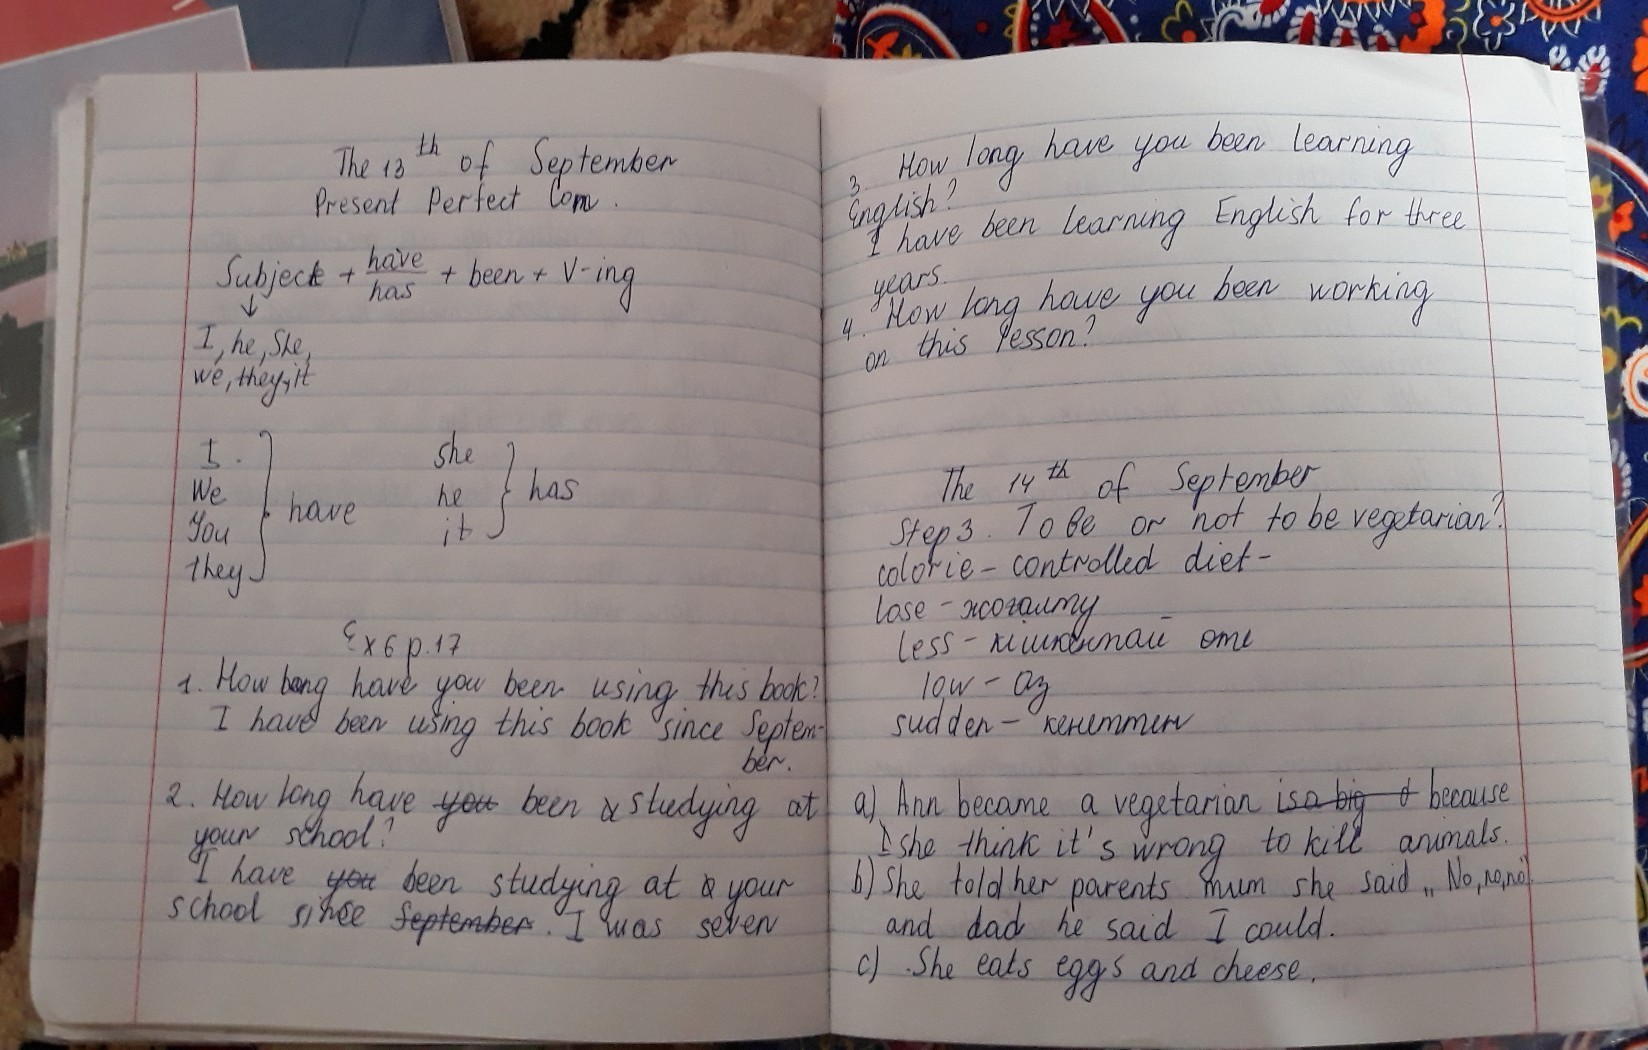 The 13th of September
Present Perfect Con.
Subject + have/has + been + V-ing
↓
I, he, She,
we, they, it
I.
We
You
they
have
she
he
it
has
Ex 6 p.17
1. How long have you been using this book?
I have been using this book since Septem-
ber.
2. How long have you been studying at
your school?
I have you been studying at your
school since September. I was seven
3. How long have you been learning
English?
I have been learning English for three
years.
4. How long have you been working
on this lesson?
The 14th of September
Step 3. To be or not to be vegetarian?
calorie - controlled diet -
lose - жоғалту
less - кішкентай
low - аз
sudden - кенеттен
a) Ann became a vegetarian is a big because
she think it's wrong to kill animals.
b) She told her parents mum she said „No, no, no"
and dad he said I could.
c) She eats eggs and cheese.